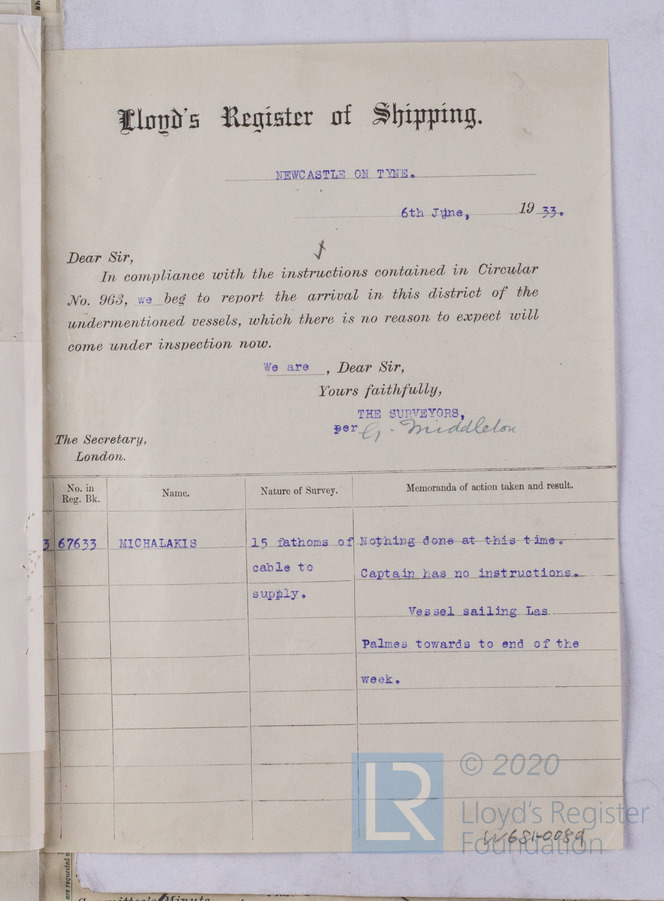 Lloyd's Register of Shipping.
NEWCASTLE ON TYNE.
6th June, 19 33.
Dear Sir,
In compliance with the instructions contained in Circular
No. 963, we beg to report the arrival in this district of the
undermentioned vessels, which there is no reason to expect will
come under inspection now.
We are , Dear Sir,
Yours faithfully,
THE SURVEYORS,
per G. Middleton
The Secretary,
London.
No. in Reg. Bk. Name. Nature of Survey. Memoranda of action taken and result.
3 67633 MICHALAKIS 15 fathoms of Nothing done at this time.
cable to Captain has no instructions.
supply. Vessel sailing Las
Palmes towards to end of the
week.
LR © 2020
Lloyd's Register
Foundation
W681-0089
Committee's Minute